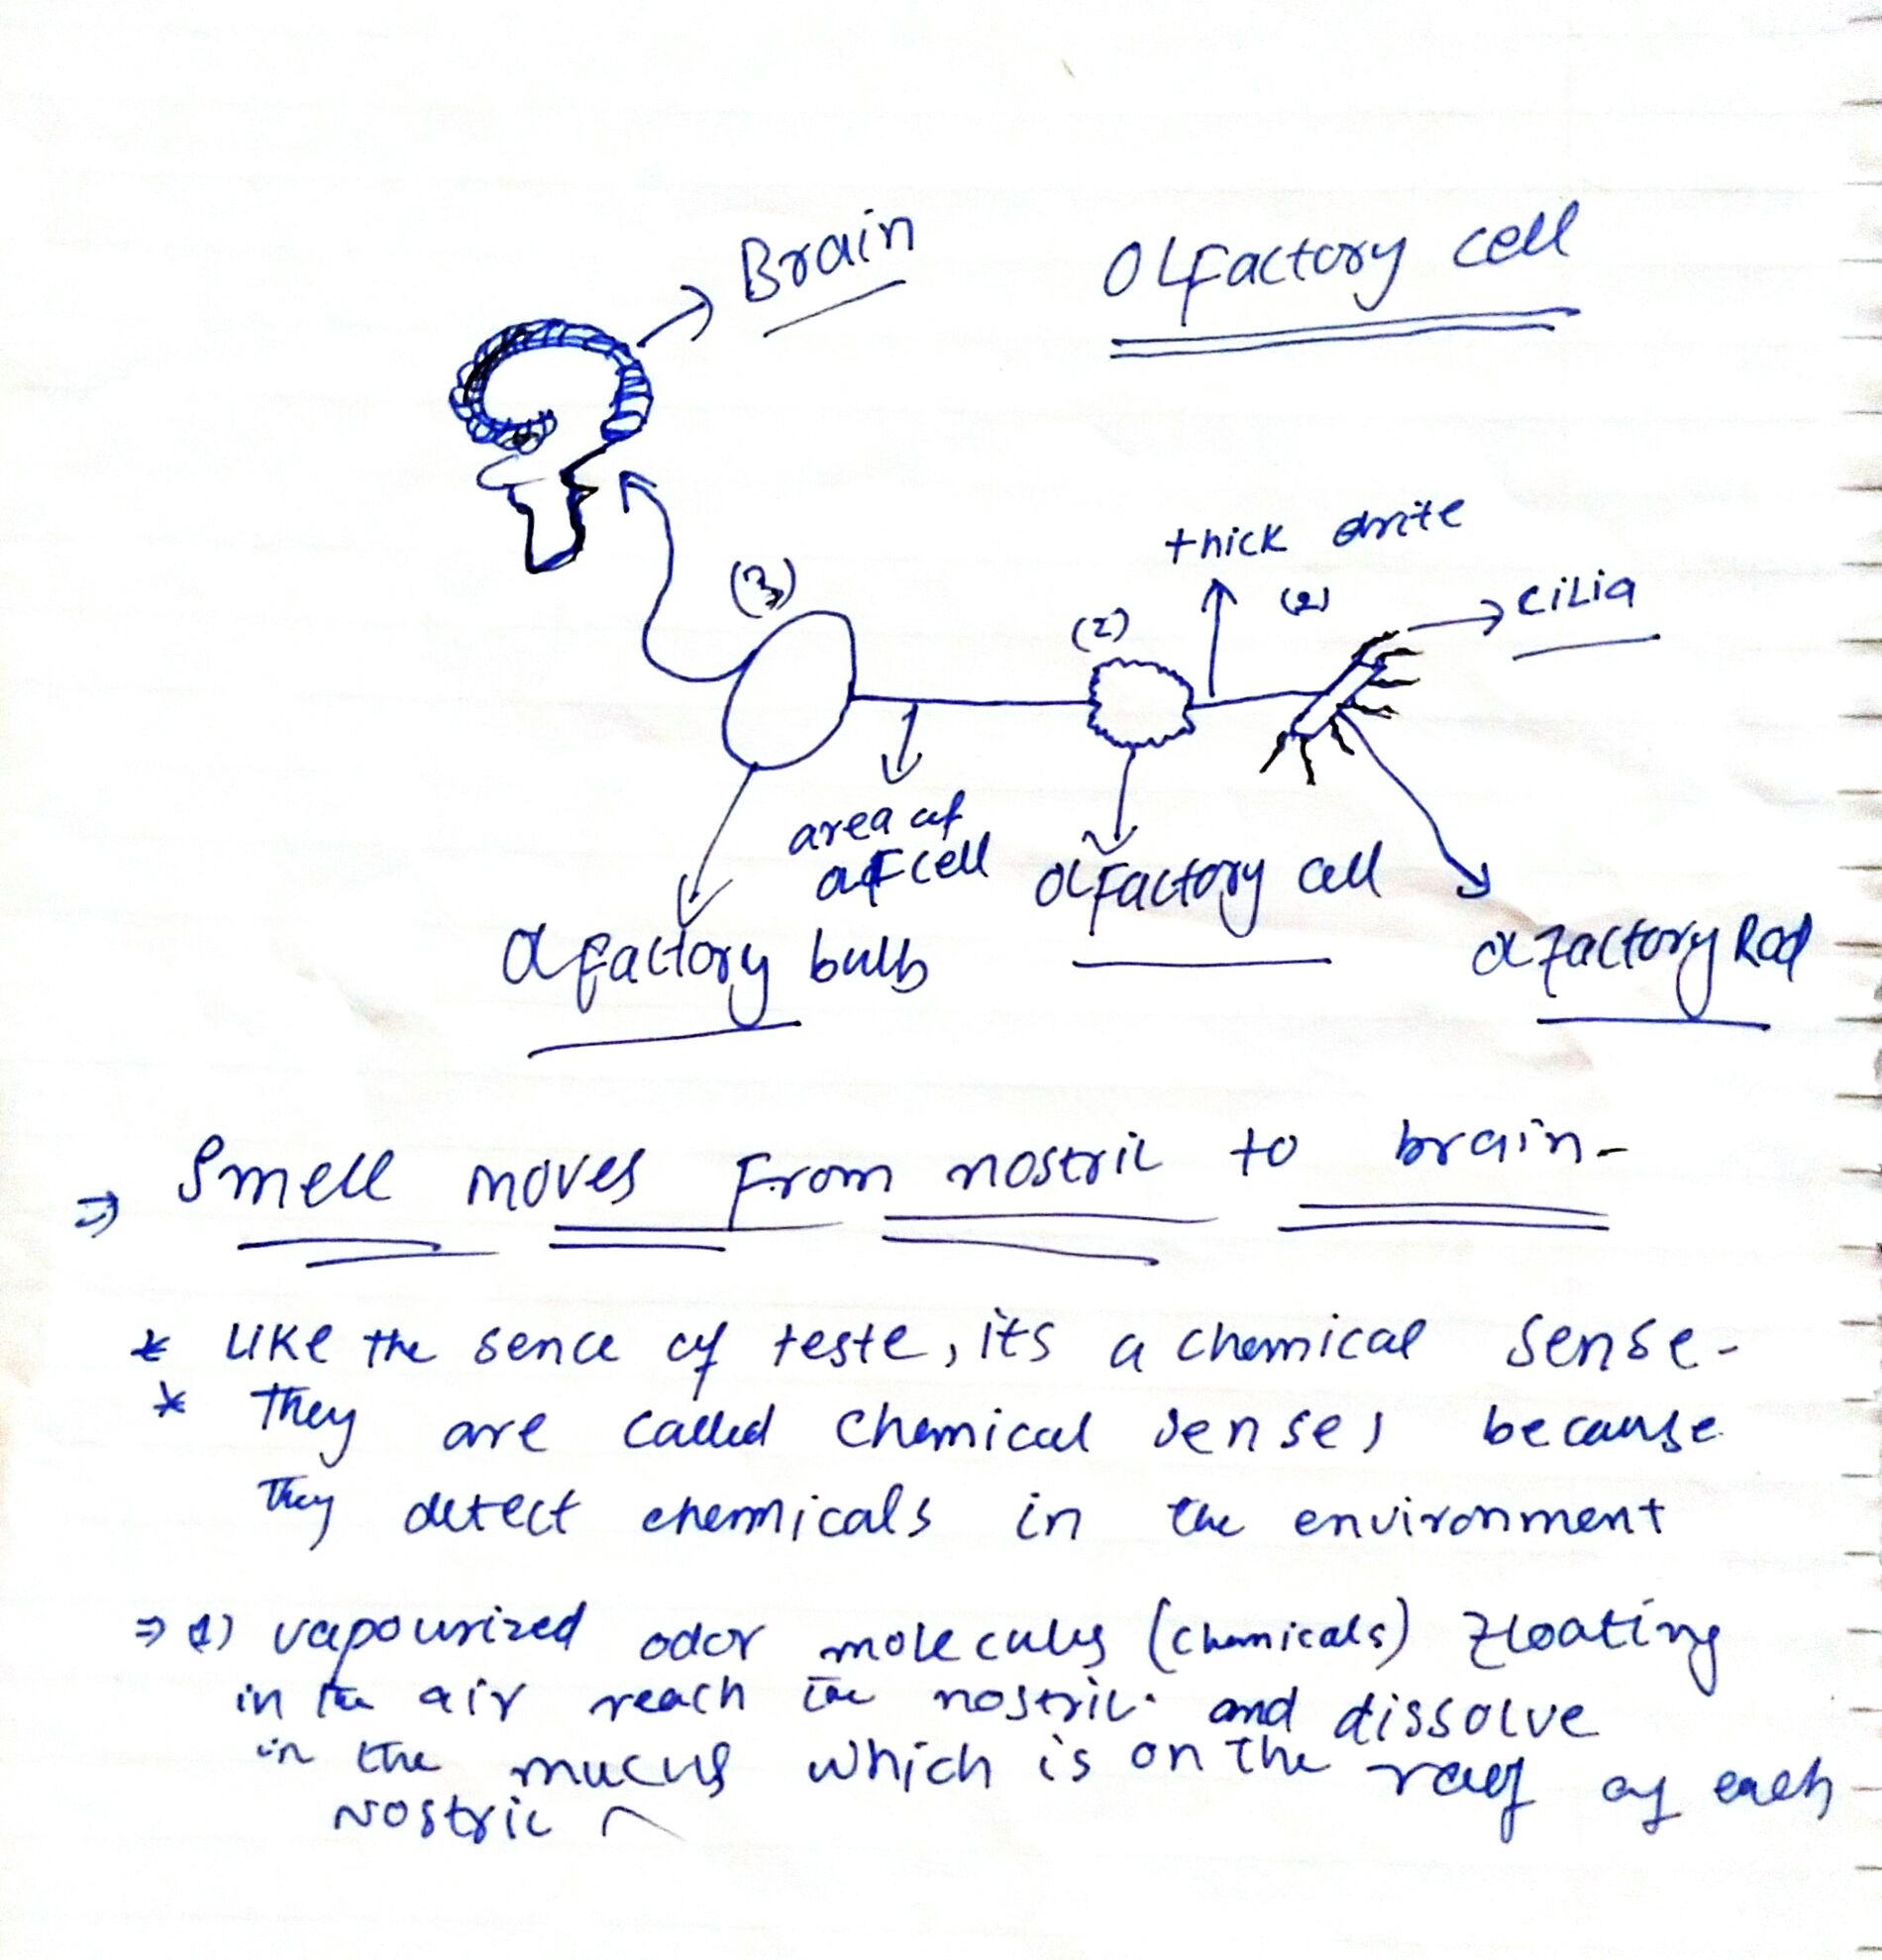 Brain
OLfactory cell
thick drite
(2)
ciLia
(3)
(2)
area of
of cell
olfactory cell
olfactory bulb
olfactory Rod
⇒ Smell moves From nostril to brain-
* Like the sence of teste, its a chemical sense-
* They are called chemical senses because
They detect chemicals in the environment
⇒ 1) vapourized odor molecules (chemicals) floating
in the air reach the nostril. and dissolve
in the mucus which is on the roof of each
Nostril